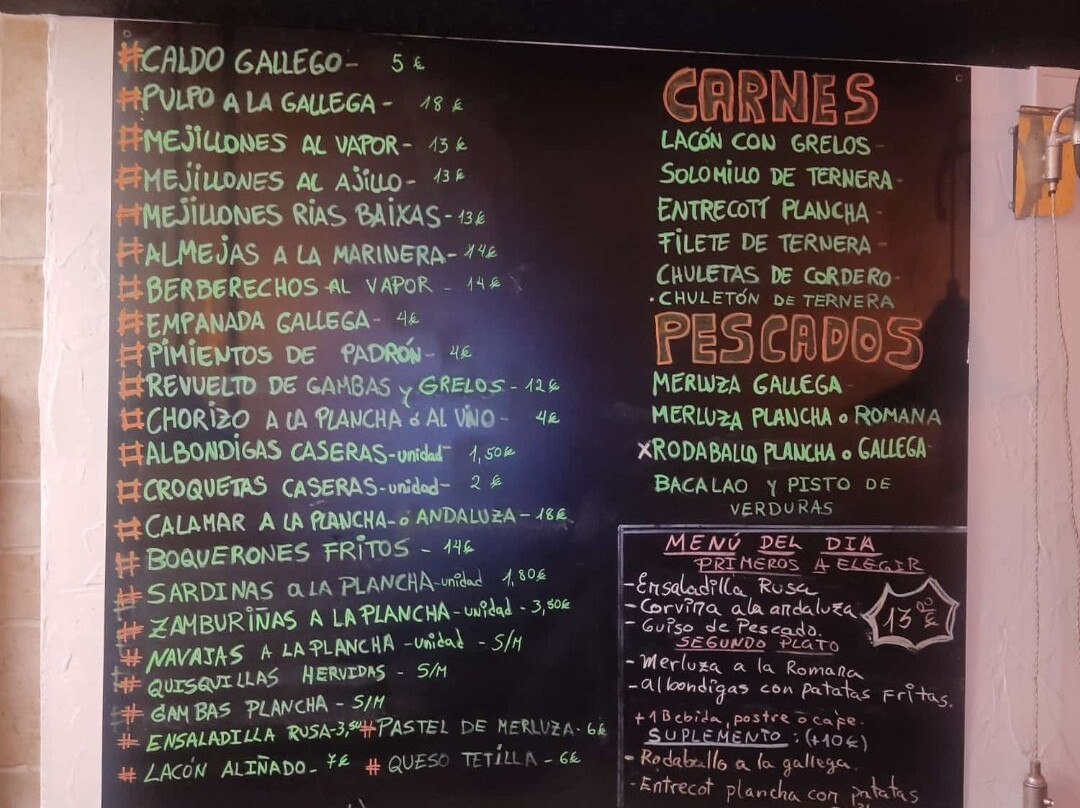 #CALDO GALLEGO- 5 €
#PULPO A LA GALLEGA - 18 €
#MEJILLONES AL VAPOR- 13 €
#MEJILLONES AL AJILLO- 13 €
#MEJILLONES RIAS BAIXAS-13€
#ALMEJAS A LA MARINERA- 14€
#BERBERECHOS AL VAPOR - 14 €
#EMPANADA GALLEGA- 4€
#PIMIENTOS DE PADRÓN- 4€
#REVUELTO DE GAMBAS y GRELOS - 12 €
#CHORIZO A LA PLANCHA ó AL VINO- 4€
#ALBONDIGAS CASERAS-unidad- 1,50€
#CROQUETAS CASERAS-unidad- 2 €
#CALAMAR A LA PLANCHA-ó ANDALUZA-18€
#BOQUERONES FRITOS - 14€
#SARDINAS a LA PLANCHA-unidad 1,80€
#ZAMBURIÑAS A LA PLANCHA-unidad - 3,50€
#NAVAJAS A LA PLANCHA-unidad - S/M
#QUISQUILLAS HERVIDAS - S/M
#GAMBAS PLANCHA - S/M
#ENSALADILLA RUSA-3,50 #PASTEL DE MERLUZA-6€
#LACÓN ALIÑADO- 7€ #QUESO TETILLA-6€
CARNES
LACÓN CON GRELOS-
SOLOMILLO DE TERNERA-
ENTRECOTT PLANCHA-
FILETE DE TERNERA-
CHULETAS DE CORDERO-
·CHULETÓN DE TERNERA
PESCADOS
MERLUZA GALLEGA-
MERLUZA PLANCHA o ROMANA
XRODABALLO PLANCHA o GALLEGA-
BACALAO Y PISTO DE
VERDURAS
MENÚ DEL DIA
PRIMEROS A ELEGIR
-Ensaladilla Rusa
-Corvina a la andaluza
-Guiso de Pescado.
13,00 €
SEGUNDO PLATO
-Merluza a la Romana
-albondigas con patatas fritas.
+1 Bebida, postre o cafe.
SUPLEMENTO: (+10€)
-Rodaballo a la gallega.
-Entrecot plancha con patatas